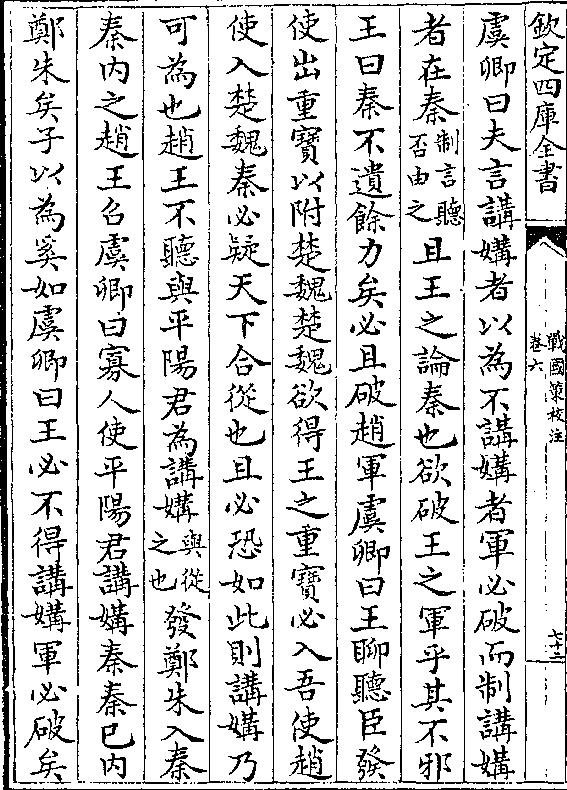 欽定四庫全書
戰國策校注
卷六
七十二
虞卿曰夫言講媾者以為不講媾者軍必破而制講媾
者在秦制言聽否由之且王之論秦也欲破王之軍乎其不邪
王曰秦不遺餘力矣必且破趙軍虞卿曰王聊聽臣發
使出重寶以附楚魏楚魏欲得王之重寶必入吾使趙
使入楚魏秦必疑天下合從也且必恐如此則講媾乃
可為也趙王不聽與平陽君為講媾與從之也發鄭朱入秦
秦內之趙王召虞卿曰寡人使平陽君講媾秦秦已內
鄭朱矣子以為奚如虞卿曰王必不得講媾軍必破矣